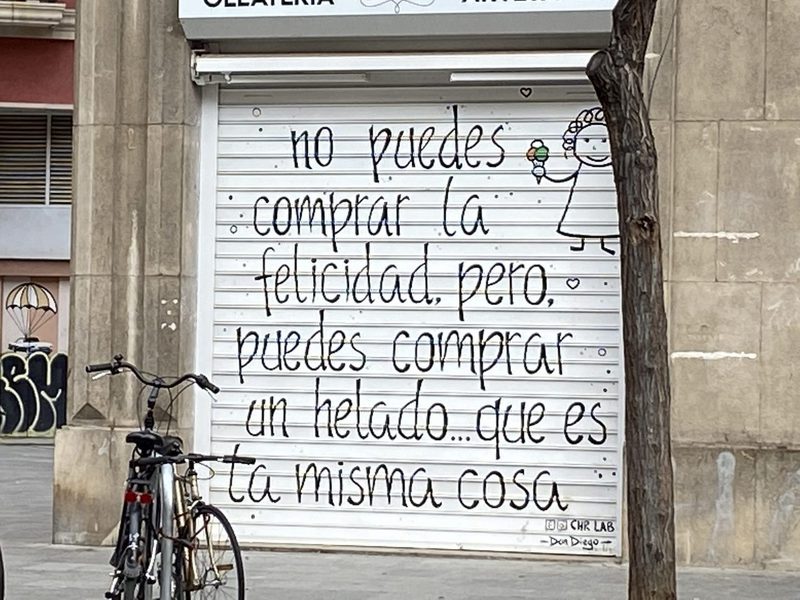 GELATERIA
no puedes
comprar la
felicidad, pero,
puedes comprar
un helado...que es
la misma cosa
CHR LAB
-Don Diego-